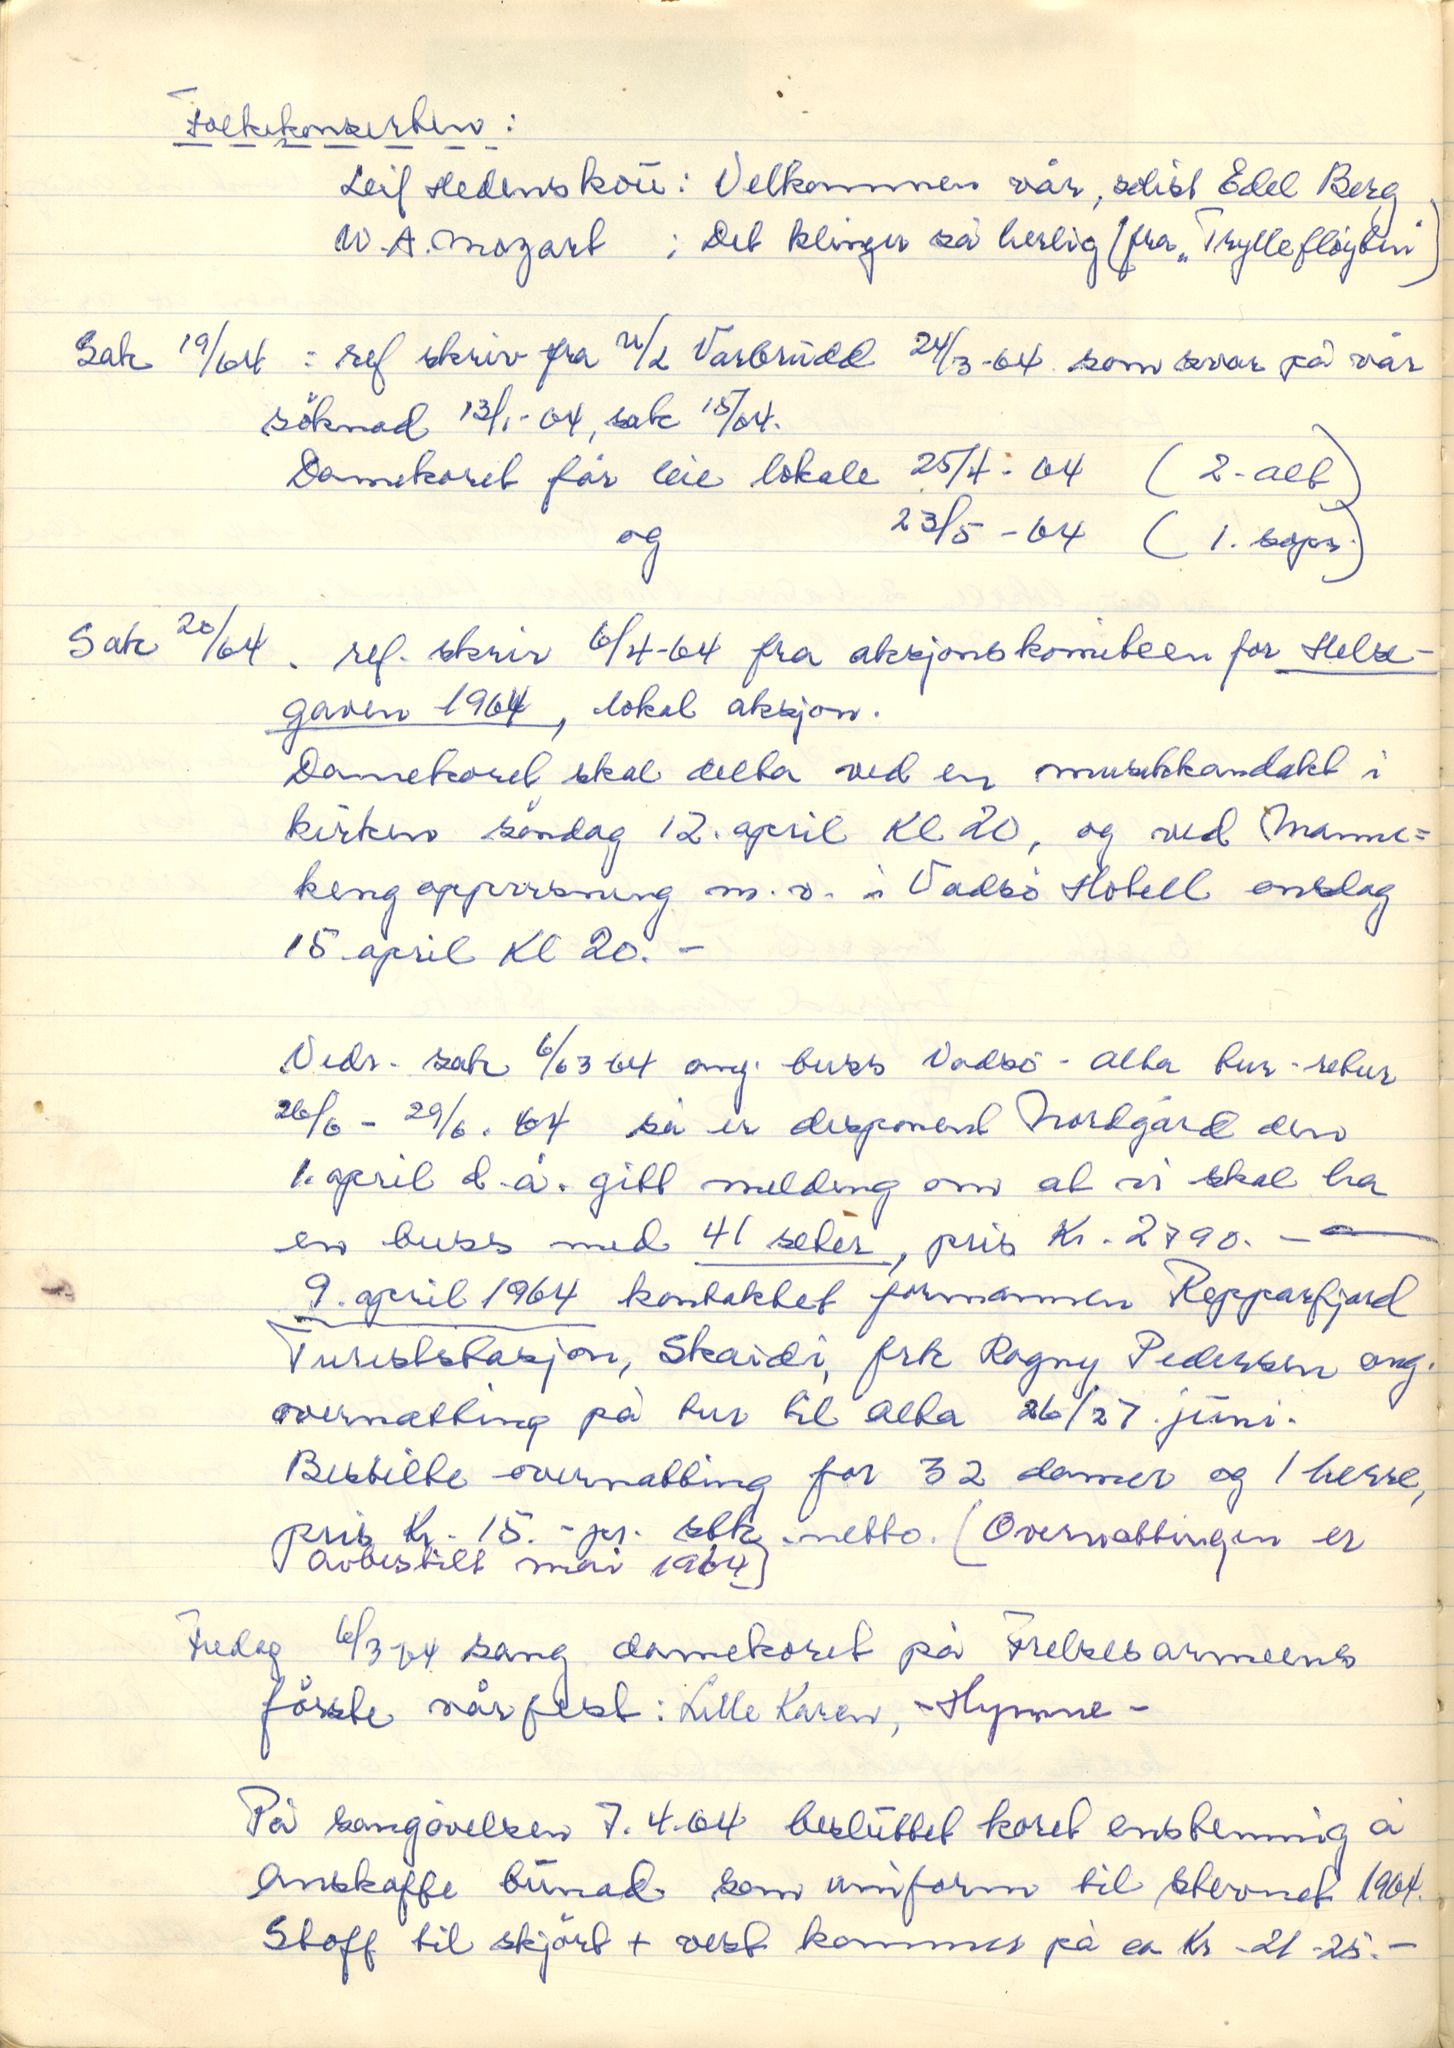 Folkekonserten:
Leif Hedenskou: Velkommen vår, solist Edel Berg
W. A. Mozart : Det klinger så herlig (fra „Tryllefløyten")
Sak 19/64 : ref skriv fra u/l Varbrudd 24/3-64 som svar på vår
söknad 13/1-64, sak 15/64.
Damekoret får leie lokale 25/4-64 (2-alt)
og 23/5-64 (1. sopr.)
Sak 20/64. ref. skriv 6/4-64 fra aksjonskomiteen for Helse-
gaven 1964, lokal aksjon.
Damekoret skal delta ved en musikkandakt i
kirken söndag 12. april Kl 20, og ved Manne=
kengoppvisning m.v. i Vadsö Hotell onsdag
15 april Kl 20. -
Vedr. sak 6/63 64 ang. buss Vadsö - Alta tur-retur
26/6 - 29/6. 64 så er disponent Nordgård den
1. april d.å. gitt melding om at vi skal ha
en buss med 41 seter, pris Kr. 2790. -
9. april 1964 kontaktet formannen Repparfjord
Turiststasjon, Skaidi, frk Ragny Pedersen ang.
overnatting på tur til Alta 26/27. juni.
Bestilte overnatting for 32 damer og 1 herre,
pris Kr. 15.- pr. stk. netto. (Overnattingen er
avbestilt mai 1964)
Fredag 6/3-64 sang damekoret på Frelsesarmeens
förste vårfest: Lille Karen, - Hymne -
På sangövelsen 7.4.64 besluttet koret enstemmig å
anskaffe bunad som uniform til stevnet 1964.
Stoff til skjört + vest kommer på ca Kr -21-25.-